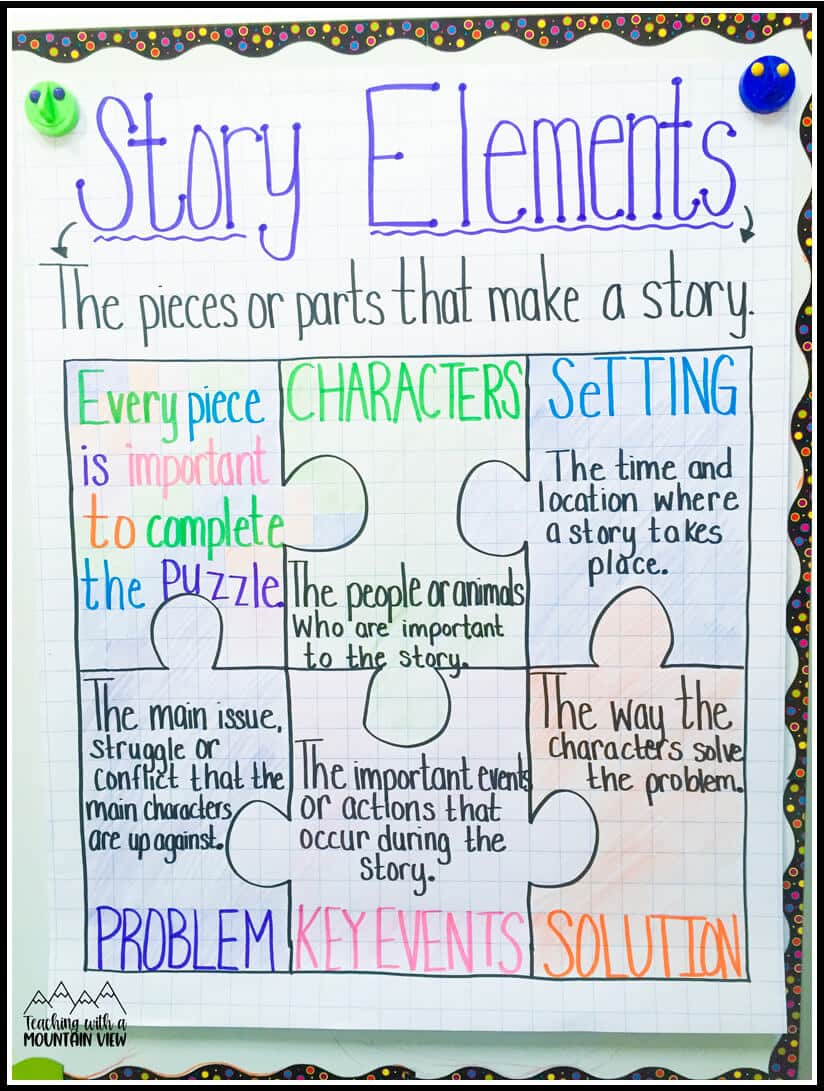 Story Elements
The pieces or parts that make a story.
Every piece
is important
to complete
the PUZZLE.
CHARACTERS
The people or animals
Who are important
to the story.
SeTTING
The time and
location where
a story takes
place.
The main issue,
struggle or
conflict that the
main characters
are up against.
PROBLEM
The important events
or actions that
occur during the
story.
KEY EVENTS
The way the
characters solve
the problem.
SOLUTION
Teaching with a
MOUNTAIN VIEW